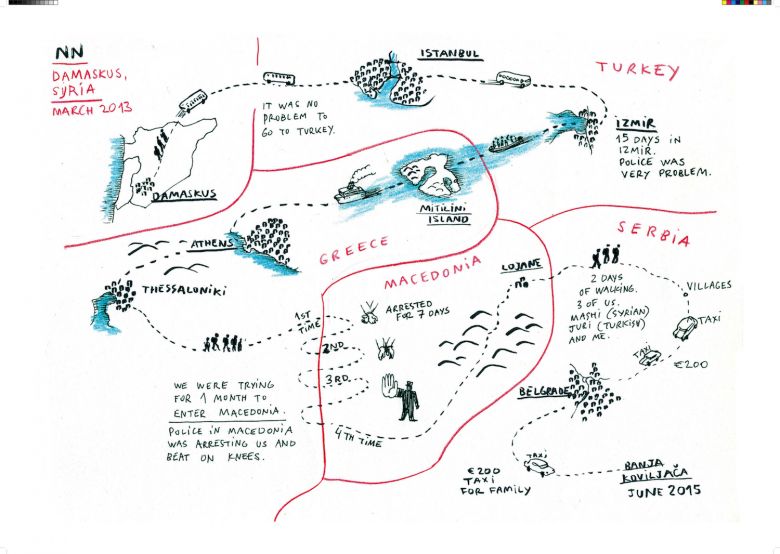 NN
DAMASKUS,
SYRIA
MARCH 2013
IT WAS NO
PROBLEM TO
GO TO TURKEY.
DAMASKUS
ISTANBUL
TURKEY
IZMIR
15 DAYS IN
IZMIR.
POLICE WAS
VERY PROBLEM.
MITILINI
ISLAND
GREECE
ATHENS
THESSALONIKI
WE WERE TRYING
FOR 1 MONTH TO
ENTER MACEDONIA.
POLICE IN MACEDONIA
WAS ARRESTING US AND
BEAT ON KNEES.
MACEDONIA
1ST
TIME
ARRESTED
FOR 7 DAYS
2ND
3RD
4TH TIME
LOJANE
SERBIA
2 DAYS
OF WALKING.
3 OF US.
MASHI (SYRIAN)
JURI (TURKISH)
AND ME.
VILLAGES
TAXI
TAXI
€200
BELGRADE
TAXI
€200
TAXI
FOR FAMILY
BANJA
KOVILJAČA
JUNE 2015